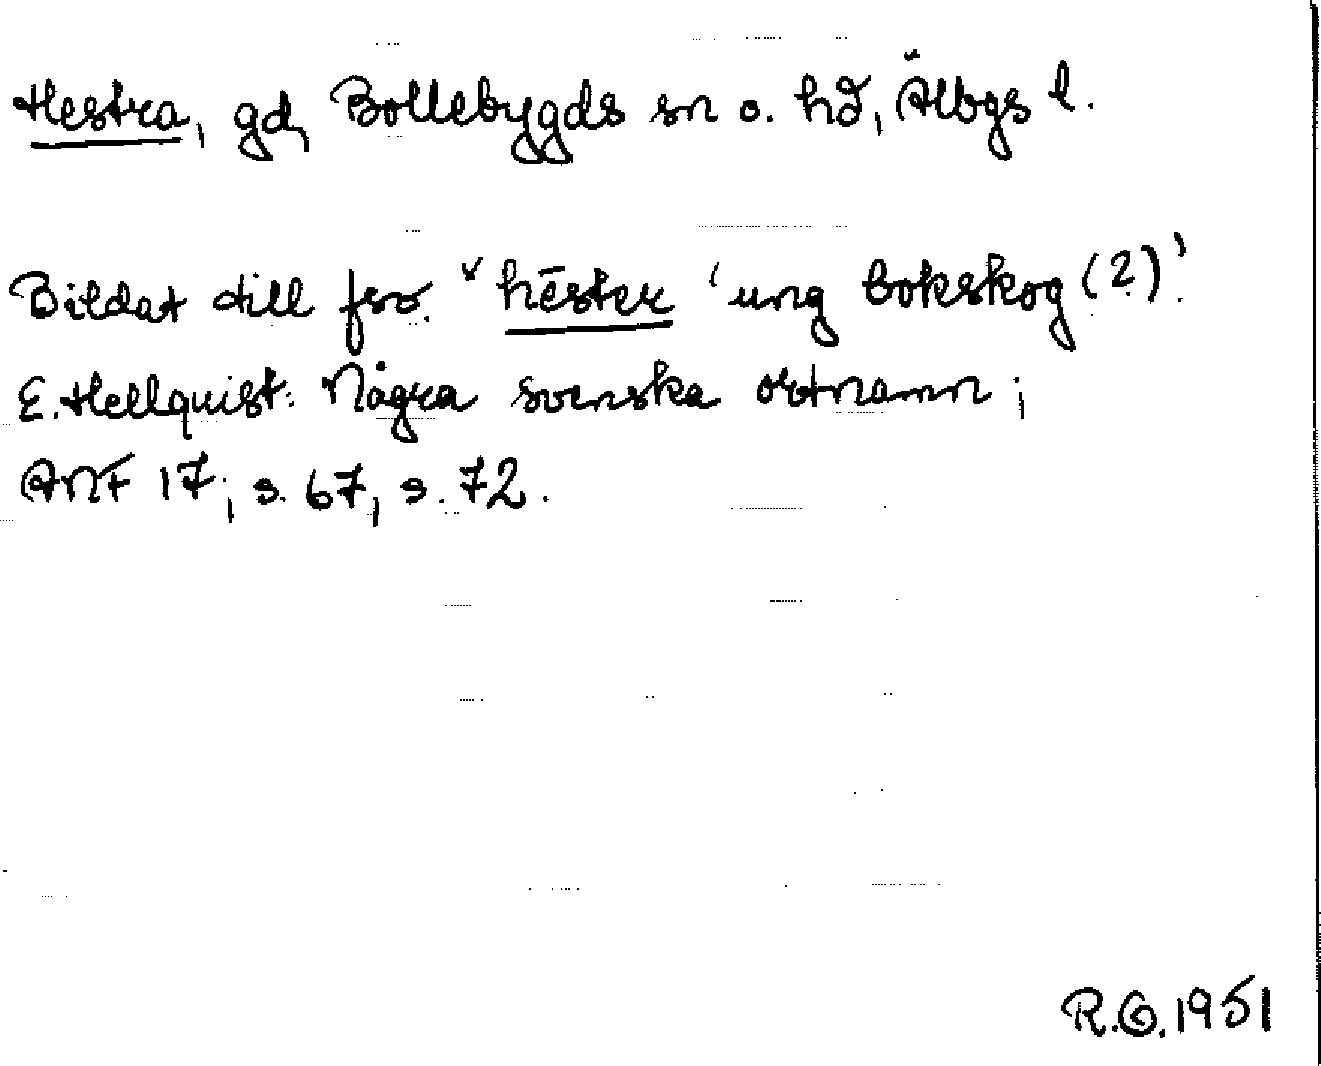 Hestra, gd, Bollebygds sn o. hd, Älbgs l.
Bildat till fsv. *hēster 'ung bokskog (?)'.
E. Hellquist: Några svenska ortnamn;
ANF 17, s. 67, s. 72.
R.G. 1951